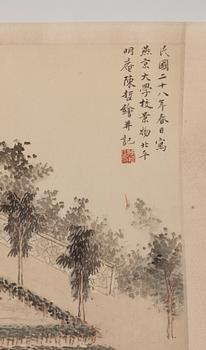 民國二十八年春日寫
燕京大學校景物北平
明菴陳哲繪并記